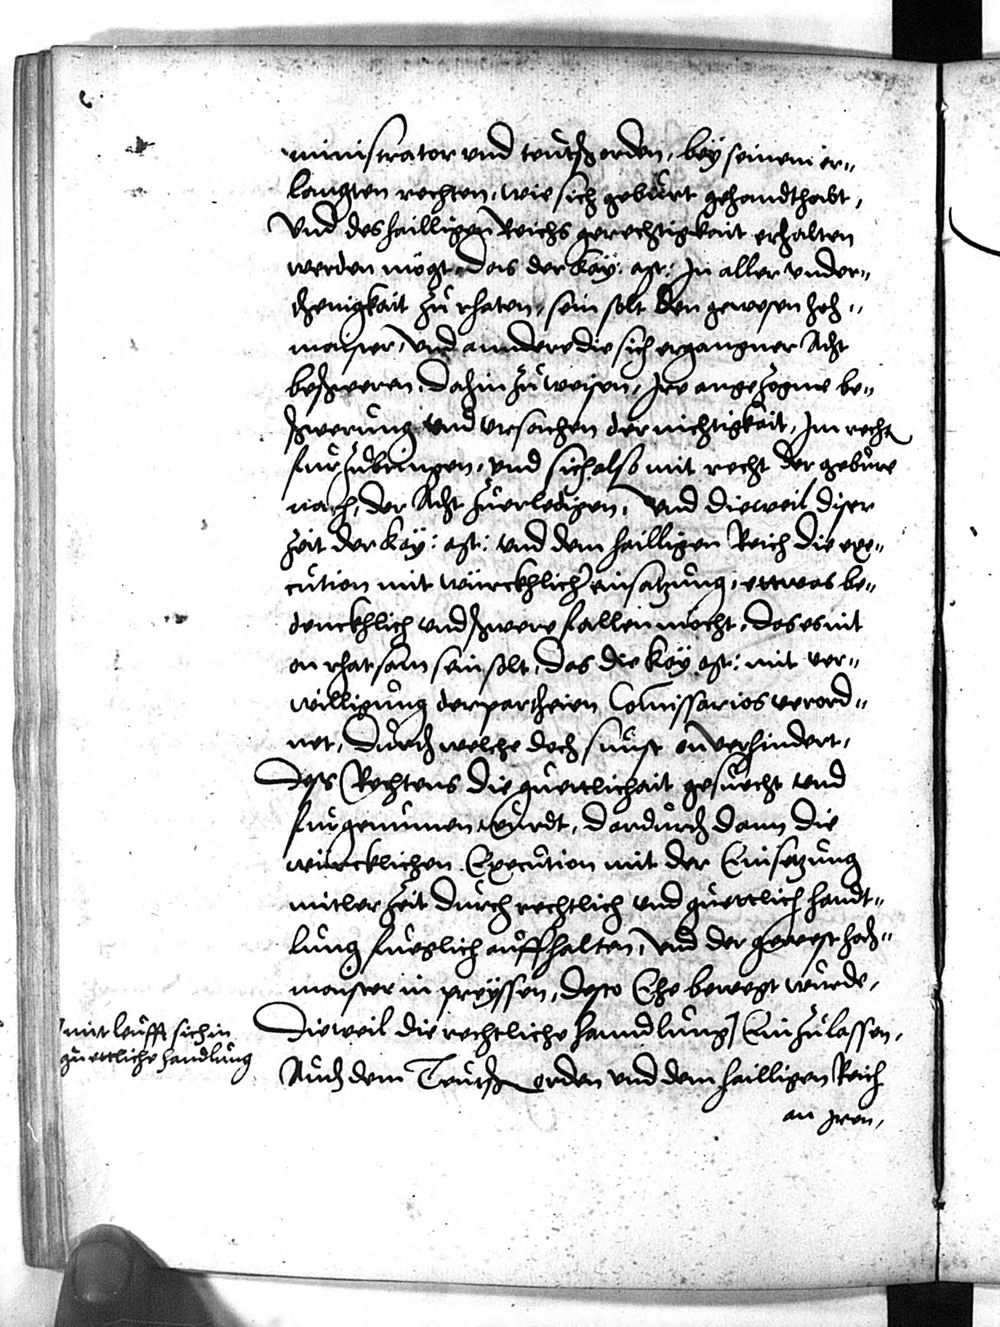 ministrator vnd teutsch orden, bey seinem er-
langten rechten, wie sich gebürt gehandthabt,
Vnd des hailligen Reichs gerechtigkait erhalten
werden mögt, Das der Kay: Mt: In aller vnder-
thenigkait zu rhaten, sein solt den gewesen hoh-
maister, vnd andere die sich ergangner Acht
beschweren, Dahin zu weisen, Ire angezogne be-
schwerung vnd vrsachen der nichtigkait, Im recht
furzubringen, vnd sich also mit recht der gebüre
nach, der Acht zuerledigen, Vnd dieweil diser
zeit der Kay: Mt: vnd dem hailligen Reich die exe-
cution mit würckhlicher einsatzung, ettwas be-
denckhlich vnd schwere fallen möcht, Das es nit
on rhatsam sein solt, Das die Kay Mt: mit ver-
willigung der partheien Comissarios verord-
net, Durch welche doch sunst onverhindert,
Des Rechtens die guettlichait gesuecht vnd
furgenumen wurdt, Dardurch dann die
würcklichen Execution mit der Einsetzung
mitler zeit durch rechtlich vnd guettlich handt-
lung fueglich auffhalten, Vnd der gewest hoh-
maister in preyssen, desto Ehe bewegt wurde,
Dieweil die rechtliche hanndlung Einzulassen,
Auch dem Teutsch orden vnd dem hailligen Reich
an Iren,
mit laufft sich in
guettliche handlung